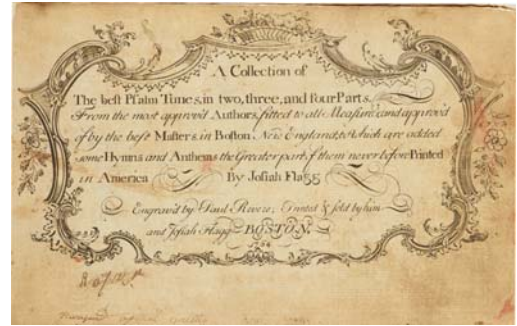 A Collection of
The best Psalm Tunes, in two, three, and four Parts.
From the most approv'd Authors, fitted to all Measures, and approv'd
of by the best Masters in Boston New England, to which are added
some Hymns and Anthems the Greater part of them never before Printed
in America By Josiah Flagg
Engrav'd by Paul Revere, Printed & sold by him
and Josiah Flagg BOSTON.